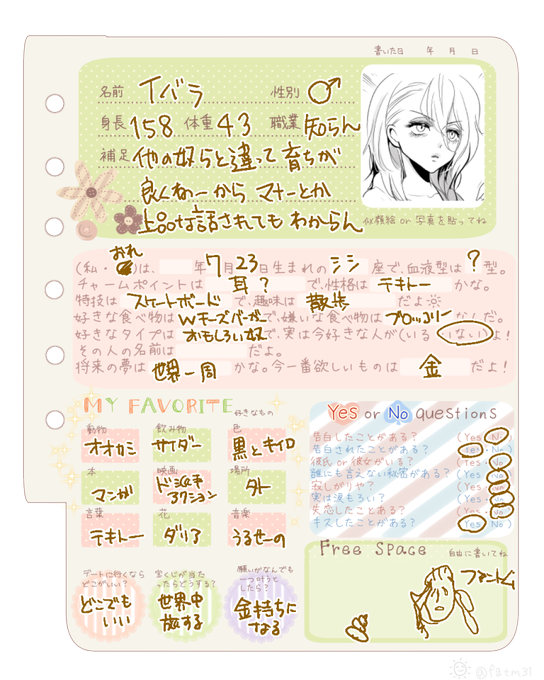 書いた日 年 月 日
名前 イバラ 性別 ♂
身長 158 体重 43 職業 知らん
補足 他の奴らと違って育ちが
良くねーから マナーとか
上品な話されてもわからん
似顔絵 or 写真を貼ってね
おれ
(私・ )は、 年7月23日生まれのシシ座で、血液型は?型。
チャームポイントは 耳? で、性格は テキトー かな。
特技は スケートボード で、趣味は 散歩 だよ
好きな食べ物は Wチーズバーガー で、嫌いな食べ物は ブロッコリー なんだ。
好きなタイプは おもしろい奴 で、実は今好きな人が(いる・いない)よ!
その人の名前は だよ。
将来の夢は 世界一周 かな。今一番欲しいものは 金 だよ!
MY FAVORITE 好きなもの
動物 飲み物 色
オオカミ サイダー 黒とキイロ
本 映画 場所
マンガ ド派手アクション 外
言葉 花 音楽
テキトー ダリア うるせーの
Yes or No questions
告白したことがある? (Yes・No)
告白されたことがある? (Yes・No)
彼氏 or 彼女がいる? (Yes・No)
誰にも言えない秘密がある? (Yes・No)
寂しがりや? (Yes・No)
実は涙もろい? (Yes・No)
失恋したことある? (Yes・No)
キスしたことがある? (Yes・No)
デートに行くならどこがいい?
どこでもいい
宝くじが当たったらどうする?
世界中旅する
願いがなんでも一つ叶うとしたら?
金持ちになる
Free Space 自由に書いてね
ファントム
@fatm31